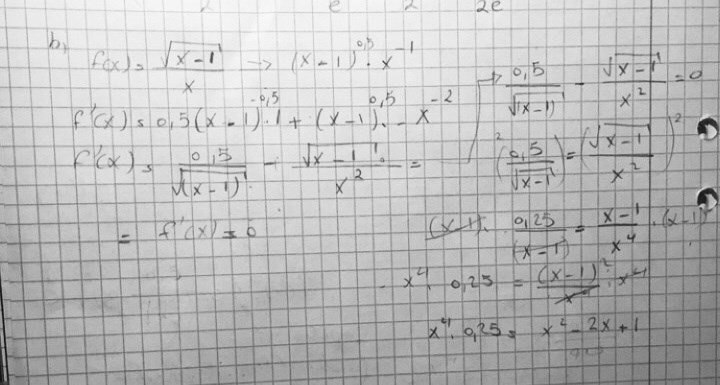 e 2 2e
b) f(x) = √(x-1) / x → (x-1)^0,5 · x^-1
f'(x) = 0,5(x-1)^-0,5 · 1 + (x-1)^0,5 · -x^-2
f'(x) = 0,5 / √(x-1) - √(x-1) / x^2 =
= f'(x) = 0
0,5 / √(x-1) - √(x-1) / x^2 = 0
(0,5 / √(x-1))^2 = (√(x-1) / x^2)^2
(x-1) · 0,25 / (x-1) = x-1 / x^4 · (x-1)
x^4 · 0,25 = (x-1)^2 / x^4 · x^4
x^4 · 0,25 = x^2 - 2x + 1